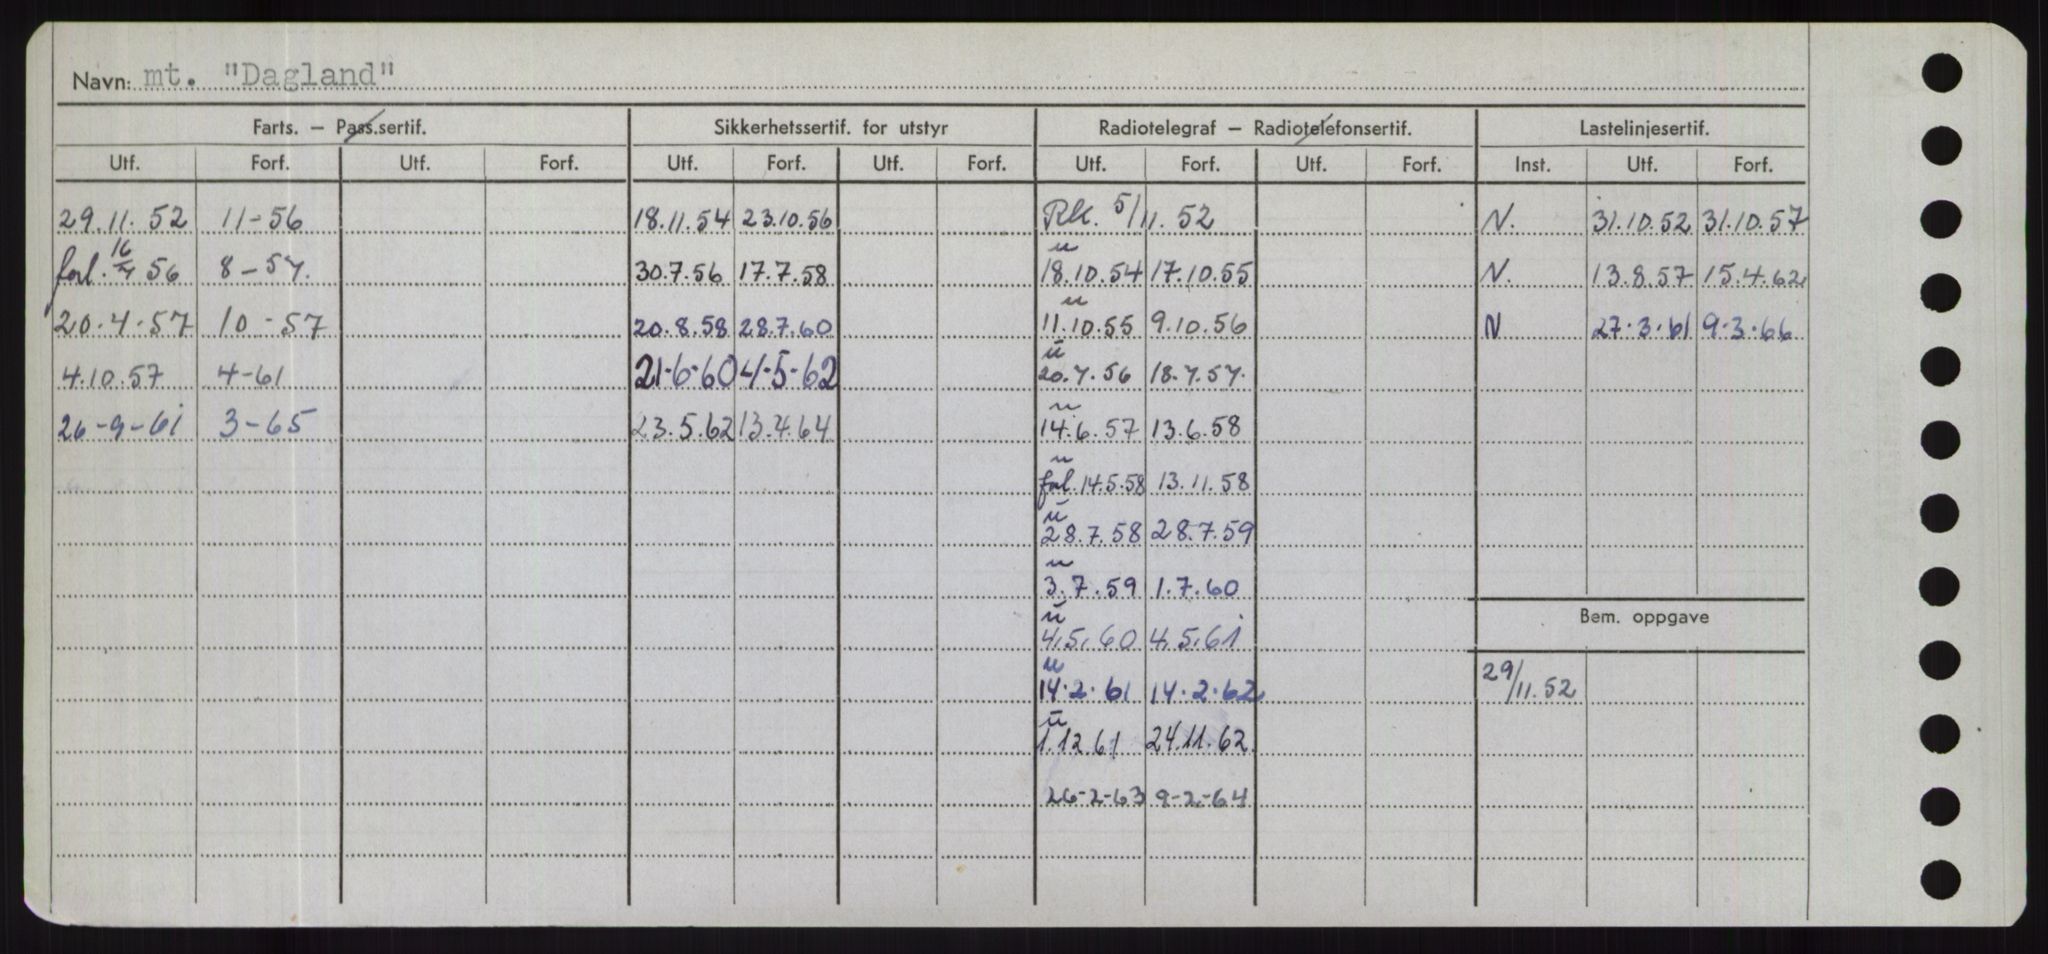 Navn: mt. "Dagland"
Farts. – Pass.sertif. Sikkerhetssertif. for utstyr Radiotelegraf – Radiotelefonsertif. Lastelinjesertif.
Utf. Forf. Utf. Forf. Utf. Forf. Utf. Forf. Utf. Forf. Utf. Forf. Inst. Utf. Forf.
29.11.52 11-56 18.11.54 23.10.56 RK. 5/11.52 N. 31.10.52 31.10.57
forl. 16/4 56 8-57. 30.7.56 17.7.58 " 18.10.54 17.10.55 N. 13.8.57 15.4.62
20.4.57 10-57 20.8.58 28.7.60 " 11.10.55 9.10.56 N 27.3.61 9.3.66
4.10.57 4-61 21-6-60 4-5-62 " 20.7.56 18.7.57.
26-9-61 3-65 23.5.62 13.4.64 " 14.6.57 13.6.58
" forl. 14.5.58 13.11.58
" 28.7.58 28.7.59
" 3.7.59 1.7.60
" 4.5.60 4.5.61
Bem. oppgave
" 14.2.61 14.2.62 29/11.52
" 1.12.61 24.11.62
26-2-63 9-2-64